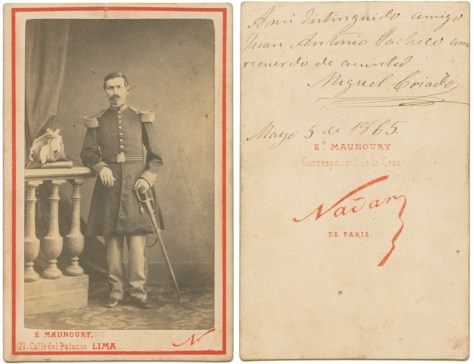 E MAUNOURY,
71. Calle del Palacio LIMA.
N
A mi distinguido amigo
Juan Antonio Pacheco como
recuerdo de amistad
Miguel Criado
Mayo 5 de 1865.
E. MAUNOURY
Corresponsal de la Casa
Nadar
DE PARIS.